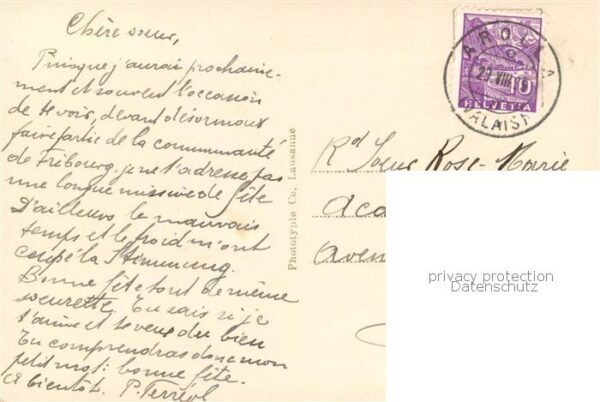 Chère sœur,
Puisque j'aurai prochaine-
ment et souvent l'occasion
de te voir, devant désormais
faire partie de la communauté
de Fribourg, je ne t'adresse pas
une longue missive de fête
D'ailleurs le mauvais
temps et le froid m'ont
coupé la Stimmung.
Bonne fête tout de même
soeurette. Tu sais si je
t'aime et te veux du bien
Tu comprendras donc mon
petit mot: bonne fête.
A bientôt. P. Ferréol
Phototypie Co. Lausanne
AROLLA
29 VIII
(VALAIS)
10
HELVETIA
Rd Soeur Rose-Marie
Aca
Aven
privacy protection
Datenschutz